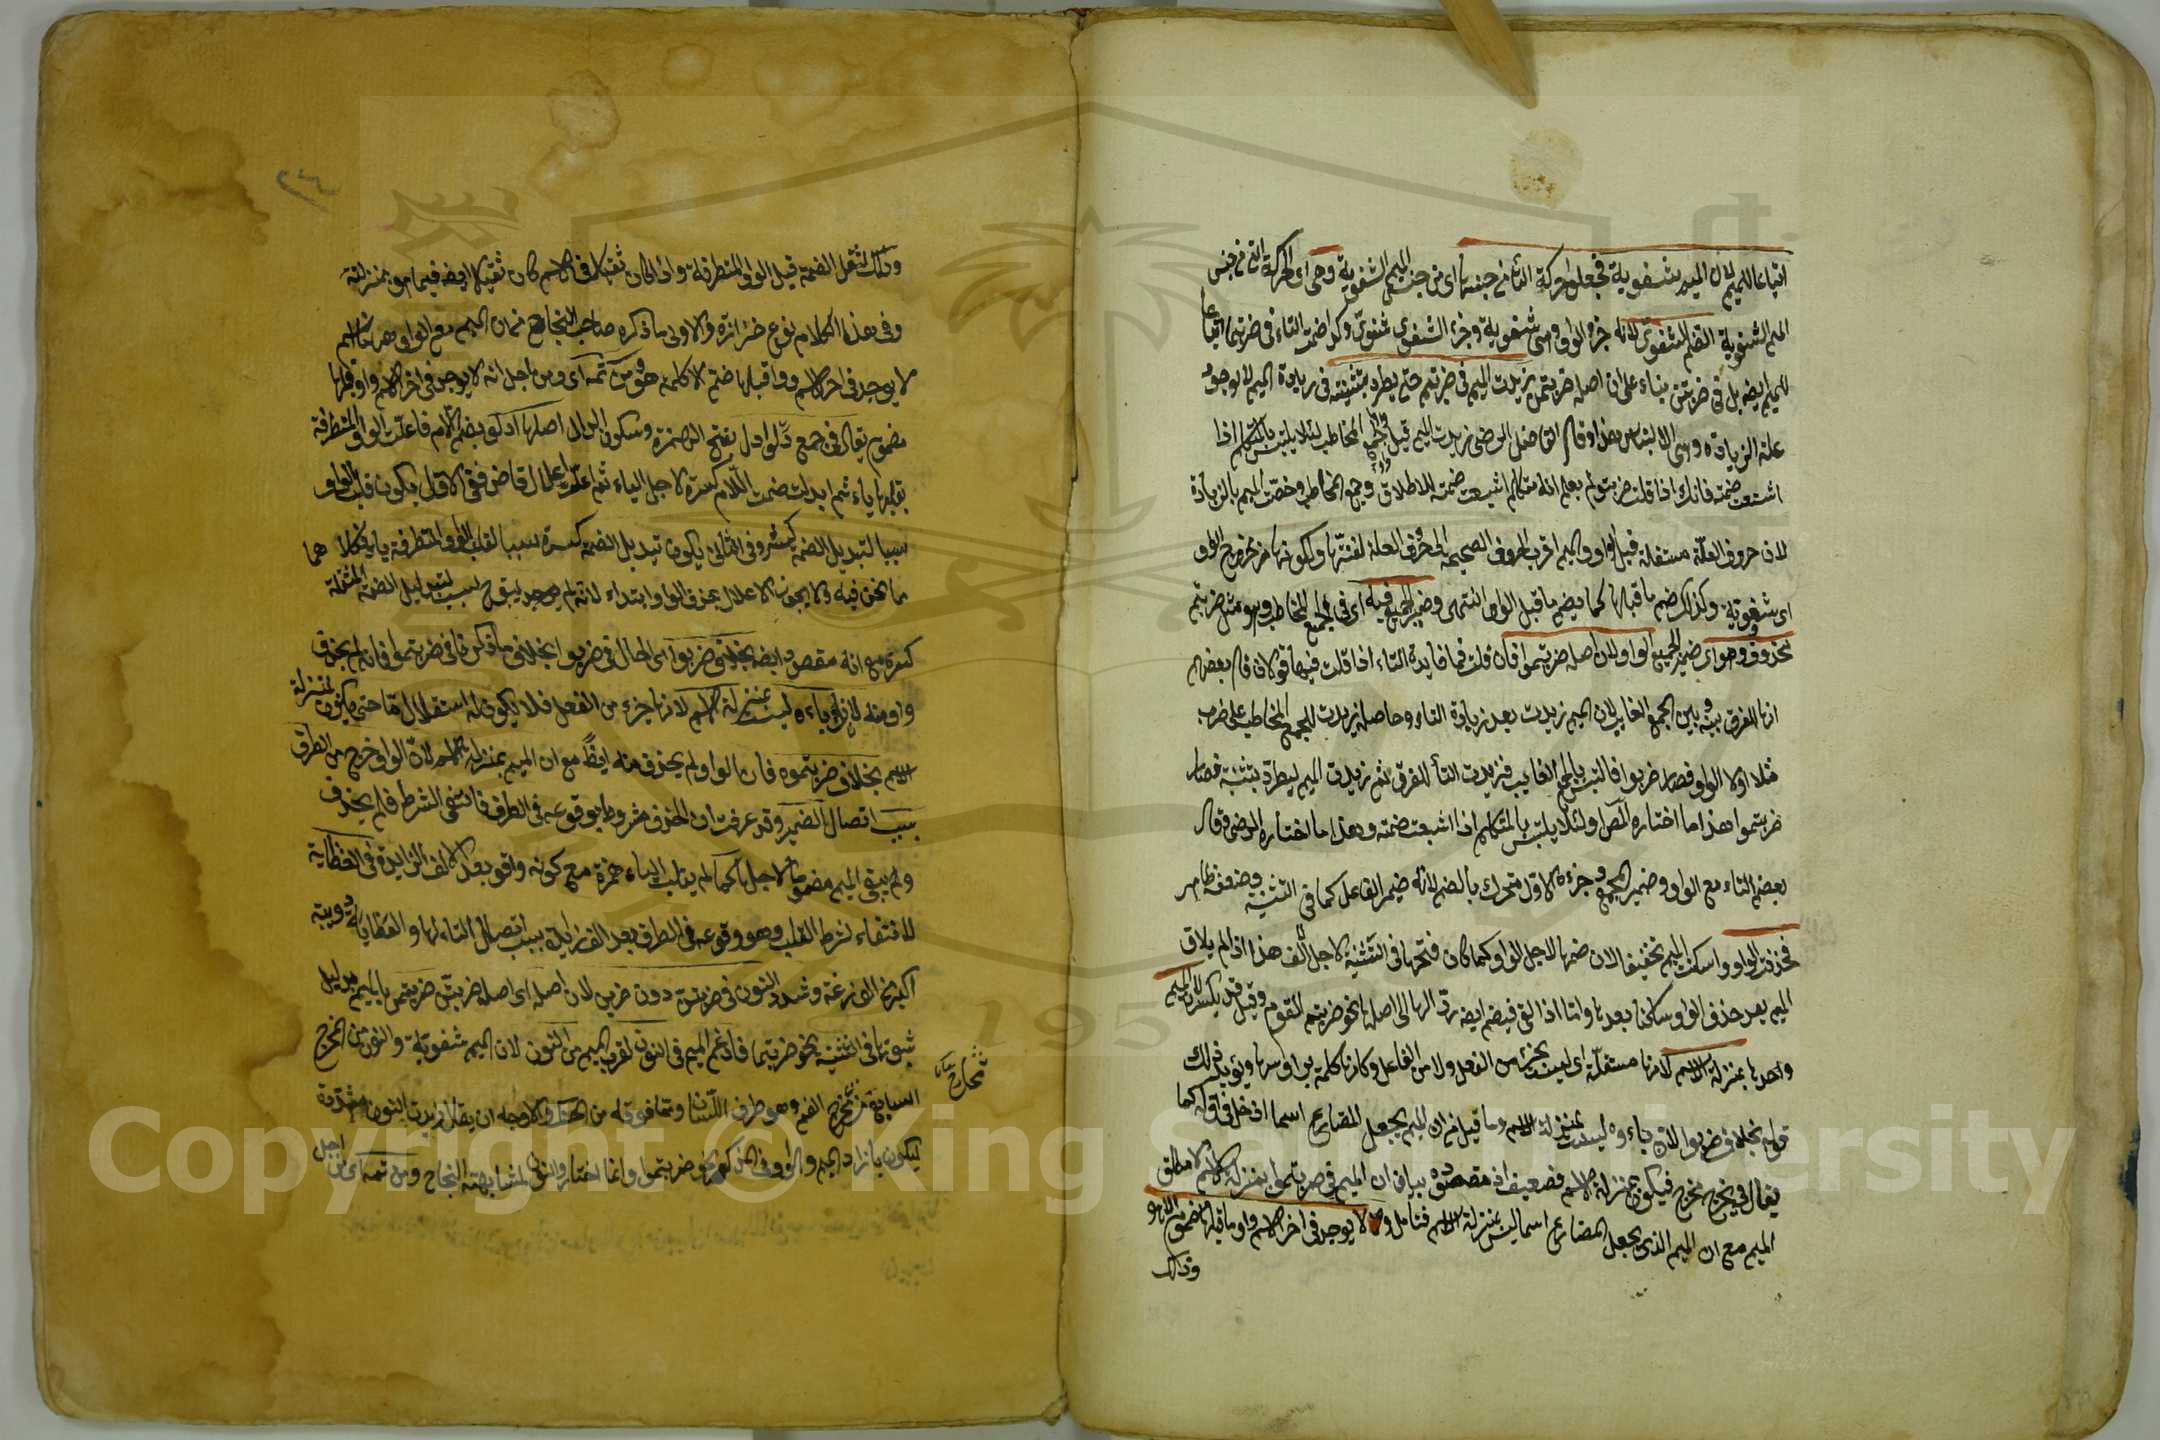 اتباعا للميم لان الميم شفوية فجعلوا حركة التاء من جنسها اى من جنس الميم الشفوية وهى اى الحركة التى من جنس
الميم الشفوية الضم الشفوى لانه جزء الواو وهى شفوية وجزء الشفوى شفوى وكذا ضمت التاء فى ضربتما اتباعا
للميم ايضه بل فى ضربتن بناء على ان اصله ضربتمن زيدت الميم فى ضربتم حتى يطرد بتثنيته فى زيادة الميم لا يوجد
علة الزيادة وهى الالتباس هذا وقال الفاضل الرضى زيدت الميم قبل واو الجمع المخاطب لئلا يلتبس بالمتكلم اذا
اشبعت ضمته فانك اذا قلت ضربتو لم يعلم انه متكلم اشبعت ضمته للاطلاق او جمع المخاطب وخصت الميم بالزيادة
لان حروف العلة مستقلة قبل الواو والميم اقرب الحروف الصحيحة الى حرف العلة لغنتها ولكونها من مخرج الواو
اى شفوية وكذلك ضم ما قبلها كما يضم ما قبل الواو انتهى وضمير الجمع فيه اى فى الجمع المخاطب وهو مثل ضربتم
محذوف وهو اى ضمير الجميع الواو ولان اصله ضربتموا فان قلت فما فايدة التاء اذا قلت فيها قولان قال بعضهم
انها للفرق بينه وبين الجمع الغايب لان الميم زيدت بعد زيادة التاء وحاصله زيدت للجمع المخاطب على ضرب
مثلا اولا الواو فصار ضربوا فالتبس بالجمع الغايب فزيدت التاء للفرق ثم زيدت الميم ليطرد بتثنية فصار
ضربتموا هذا ما اختاره المص او لئلا يلتبس بالمتكلم اذا اشبعت ضمته وهذا ما اختاره الرضى وقال
بعضهم التاء مع الواو وضمير الجمع وجزءه الاول متحرك بالضم لانه ضمير الفاعل كما فى التثنية وضعفه ظاهر
فحذفت الواو واسكنت الميم تخفيفا لان ضمها لاجل الواو كما كان فتحها فى التثنية لاجل الالف هذا اذا لم يلاق
الميم بعد حذف الواو ساكنا بعدها واما اذا لقى فيضم ايضه ردا لها الى اصلها نحو ضربتم القوم وقيل قد يكسر لان الميم
واحدها بمنزلة الاسم لانها مستقلة اى ليست بجزء من الفعل ولا من الفاعل وكانها كلمة براسها ويؤيد ذلك
قوله بخلاف ضربوا لان باءه ليست بمنزلة الاسم وما قيل من ان الميم يجعل المضارع اسما اذ دخل فى اوله كما
يقال فى يخرج مخرج فيكون بمنزلة الاسم فضعيف اذ مقصوده بيان ان الميم فى ضربتموا بمنزلة الاسم لا مطلق
الميم مع ان الميم الذى يجعل المضارع اسما ليس بمنزلة الاسم فتامل ولا يوجد فى اخر الاسم واو ما قبلها مضموم الا هو
وذلك
وذلك لثقل الضمة قبل الواو المتطرفة واذا كان ثقيلا فى الاسم كان ثقيلا ايضه فيما هو بمنزلته
وفى هذا الكلام نوع حزازة والاولى ما ذكره صاحب النجاح من ان الميم مع الواو
لا يوجد فى اخر الاسم واو قبلها ضم الا كلمة هو ومن ثمه اى ومن اجل انه لا يوجد فى اخر الاسم واو قبلها
مضموم يقال فى جمع دلو ادل بفتح الهمزة وسكون الدال اصلها ادلو بضم اللام فاعلت الواو المتطرفة
بقلبها ياء ثم ابدلت ضمت اللام كسرة لاجل الياء ثم اعلت اعلال قاض ففى الاول يكون قلب الواو
سببا لتبديل الضمة كسرة وفى الثانى يكون تبديل الضمة كسرة سببا لقلب الواو المتطرفة ياء فكلاهما
مما نحن فيه ولا يجوز الاعلال بحذف الواو ابتداء لانه لم يوجد سبب لتبديل الضمة المثقلة
كسرة مع انه مقصود ايضه بخلاف ضربوا اى الحال فى ضربوا بخلاف ما ذكرنا فى ضربتموا فانه لم يحذف
واو منه لان باءه ليست بمنزلة الاسم لانها جزء من الفعل فلا يكون له استقلال ما حتى يكون بمنزلة
الاسم بخلاف ضربتموه فان الواو لم يحذف منه ايضا مع ان الميم بمنزلة الاسم لان الواو خرج من الطرف
بسبب اتصال الضمير وقد عرفت ان الحذف مشروط بوقوعه فى الطرف فانتفى الشرط فلم يحذف
ولم يبق الميم مضموما لاجلها كما لم يقلب الياء همزة مع كونه واقع بعد الالف الزايدة فى العظاية
لانتفاء شرط القلب وهو وقوعه فى الطرف بعد الف زايدة بسبب اتصال التاء لها والعظاية دويبة
اكبر من الوزغة وشدد النون فى ضربتن دون ضربن لان اصله اى اصل ضربتن ضربتمن بالميم بدليل
ثبوتها فى التثنية نحو ضربتما فادغم الميم فى النون لقرب الميم من النون لان الميم شفوية والنون من المخرج
السابع من مخرج الفم وهو طرف اللسان وما فوقه من الحنك والاوجه ان يقال زيدت النون مشددة
ليكون بازاء الميم والواو فى المذكر نحو ضربتموا وانما اختاروا النون لمشابهته النجاح ومن ثمه اى من اجل